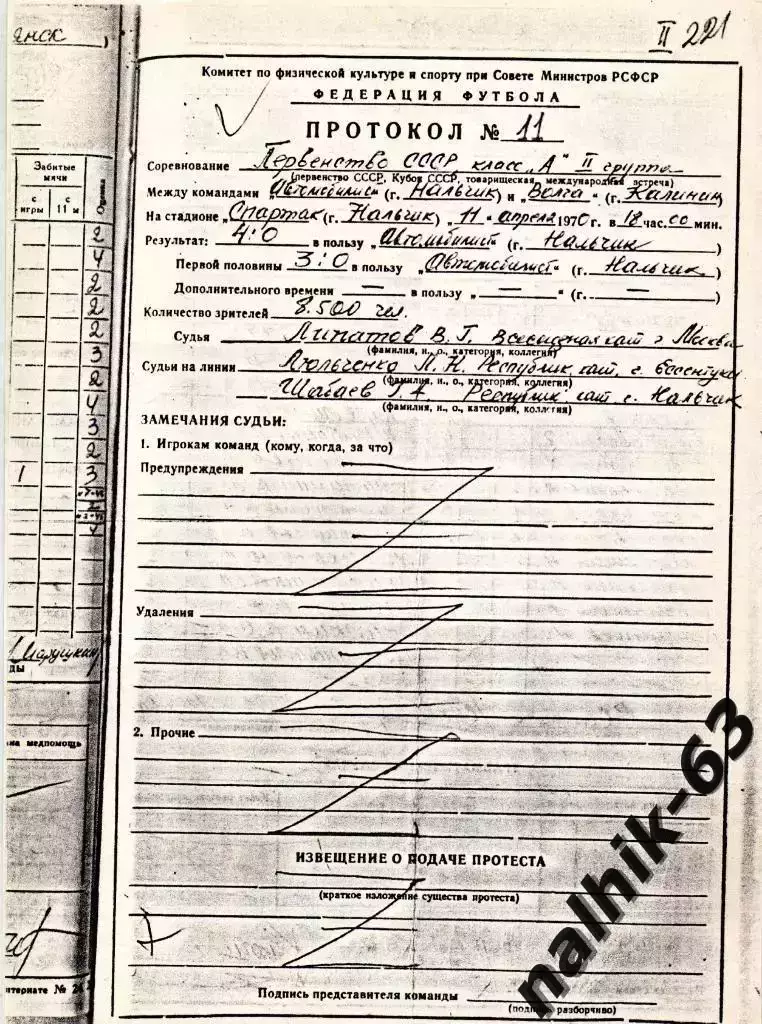 янск)
II 221
Комитет по физической культуре и спорту при Совете Министров РСФСР
ФЕДЕРАЦИЯ ФУТБОЛА
ПРОТОКОЛ № 11
Соревнование Первенство СССР класс „А" II группа
(первенство СССР, Кубок СССР, товарищеская, международная встреча)
Между командами „Автомобилист" (г. Нальчик) и „Волга" (г. Калинин
На стадионе Спартак (г. Нальчик) „11" апреля 1970 г. в 18 час. 00 мин.
Результат: 4:0 в пользу „Автомобилист" (г. Нальчик)
Первой половины 3:0 в пользу „Автомобилист" (г. Нальчик)
Дополнительного времени — в пользу „—" (г. —)
Количество зрителей 8.500 чел.
Судья Липатов В.Г. Всесоюзная кат г Москва
(фамилия, и., о., категория, коллегия)
Судьи на линии Люльченко Л.Н. Республик. кат. г. Ессентуки
(фамилия, и., о., категория, коллегия)
Шабаев Г.А. Республик кат г. Нальчик
(фамилия, и., о., категория, коллегия)
ЗАМЕЧАНИЯ СУДЬИ:
1. Игрокам команд (кому, когда, за что)
Предупреждения
Удаления
2. Прочие
ИЗВЕЩЕНИЕ О ПОДАЧЕ ПРОТЕСТА
(краткое изложение существа протеста)
Подпись представителя команды
(подпись разборчиво)
Забитые
мячи
Оценка
с игры
с 11 м
2
4
2
2
2
3
2
4
3
2
1 3
2
4
Марушкин
ды
на медпомощь
нтернате № 2
nalhik-63